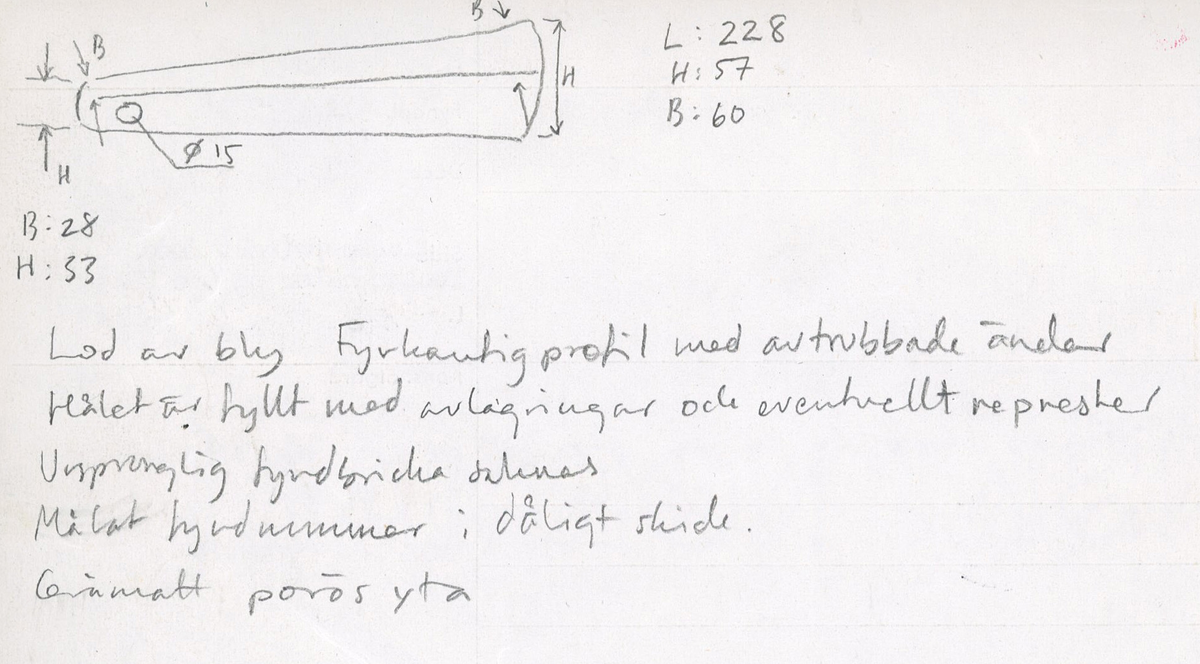 B
B
H
Ø 15
H
L: 228
H: 57
B: 60
B: 28
H: 33
Lod av bly Fyrkantig profil med avtrubbade ändar
Hålet är fyllt med avlagringar och eventuellt represter
Ursprunglig fyndbricka saknas
Målat fyndnummer i dåligt skick.
Gråmatt porös yta